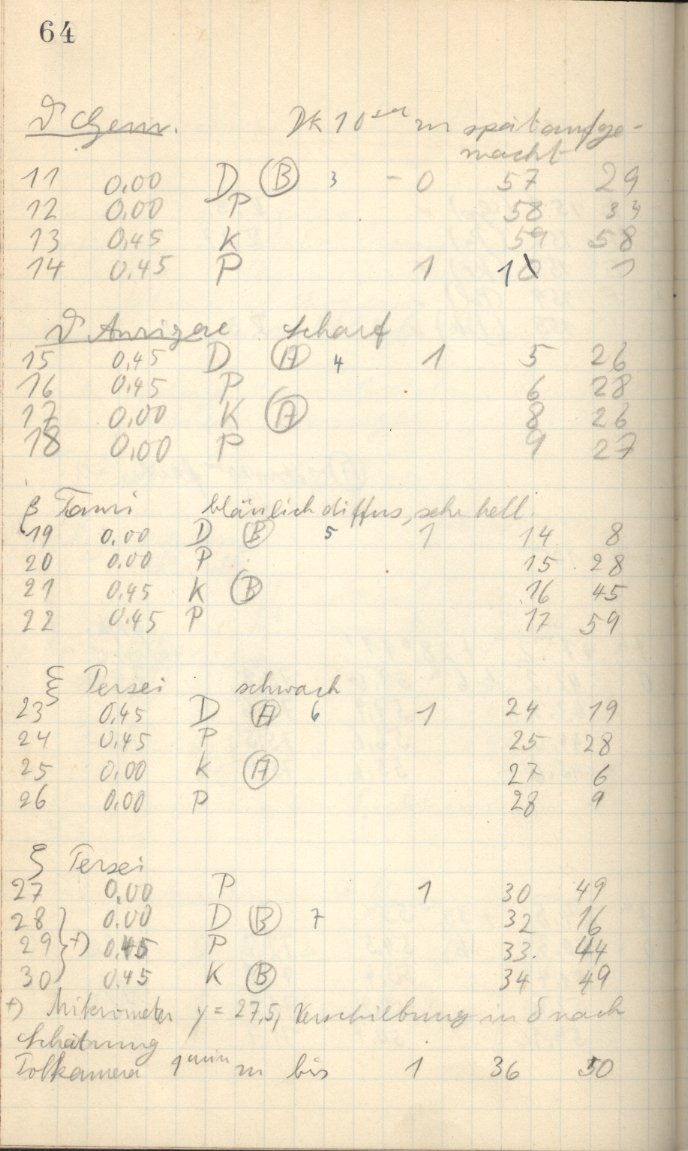 64
ϑ Gem. DK 10 sec zu spät aufge-
macht
11 0,00 D Ⓑ 3 - 0 57 29
12 0,00 P 58 33
13 0,45 K 59 58
14 0,45 P 1 1 0 1
ϑ Aurigae scharf
15 0,45 D Ⓐ 4 1 5 26
16 0,45 P 6 28
17 0,00 K Ⓐ 8 26
18 0,00 P 9 27
β Tauri bläulich diffus, sehr hell.
19 0,00 D Ⓑ 5 1 14 8
20 0,00 P 15 28
21 0,45 K Ⓑ 16 45
22 0,45 P 17 59
ξ Persei schwach
23 0,45 D Ⓐ 6 1 24 19
24 0,45 P 25 28
25 0,00 K Ⓐ 27 6
26 0,00 P 28 9
ζ Persei
27 0,00 P 1 30 49
28 0,00 D Ⓑ 7 32 16
29 +) 0,45 P 33. 44
30 0,45 K Ⓑ 34 49
+) Mikrometer y = 27,5, Verschiebung in δ nach
Schätzung
Polkamera 1 min zu bis 1 36 50